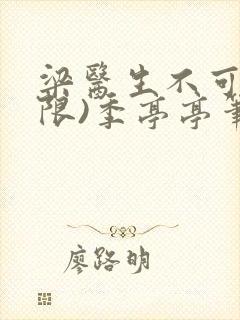 梁醫生不可
限)季亭亭筆
廖路明